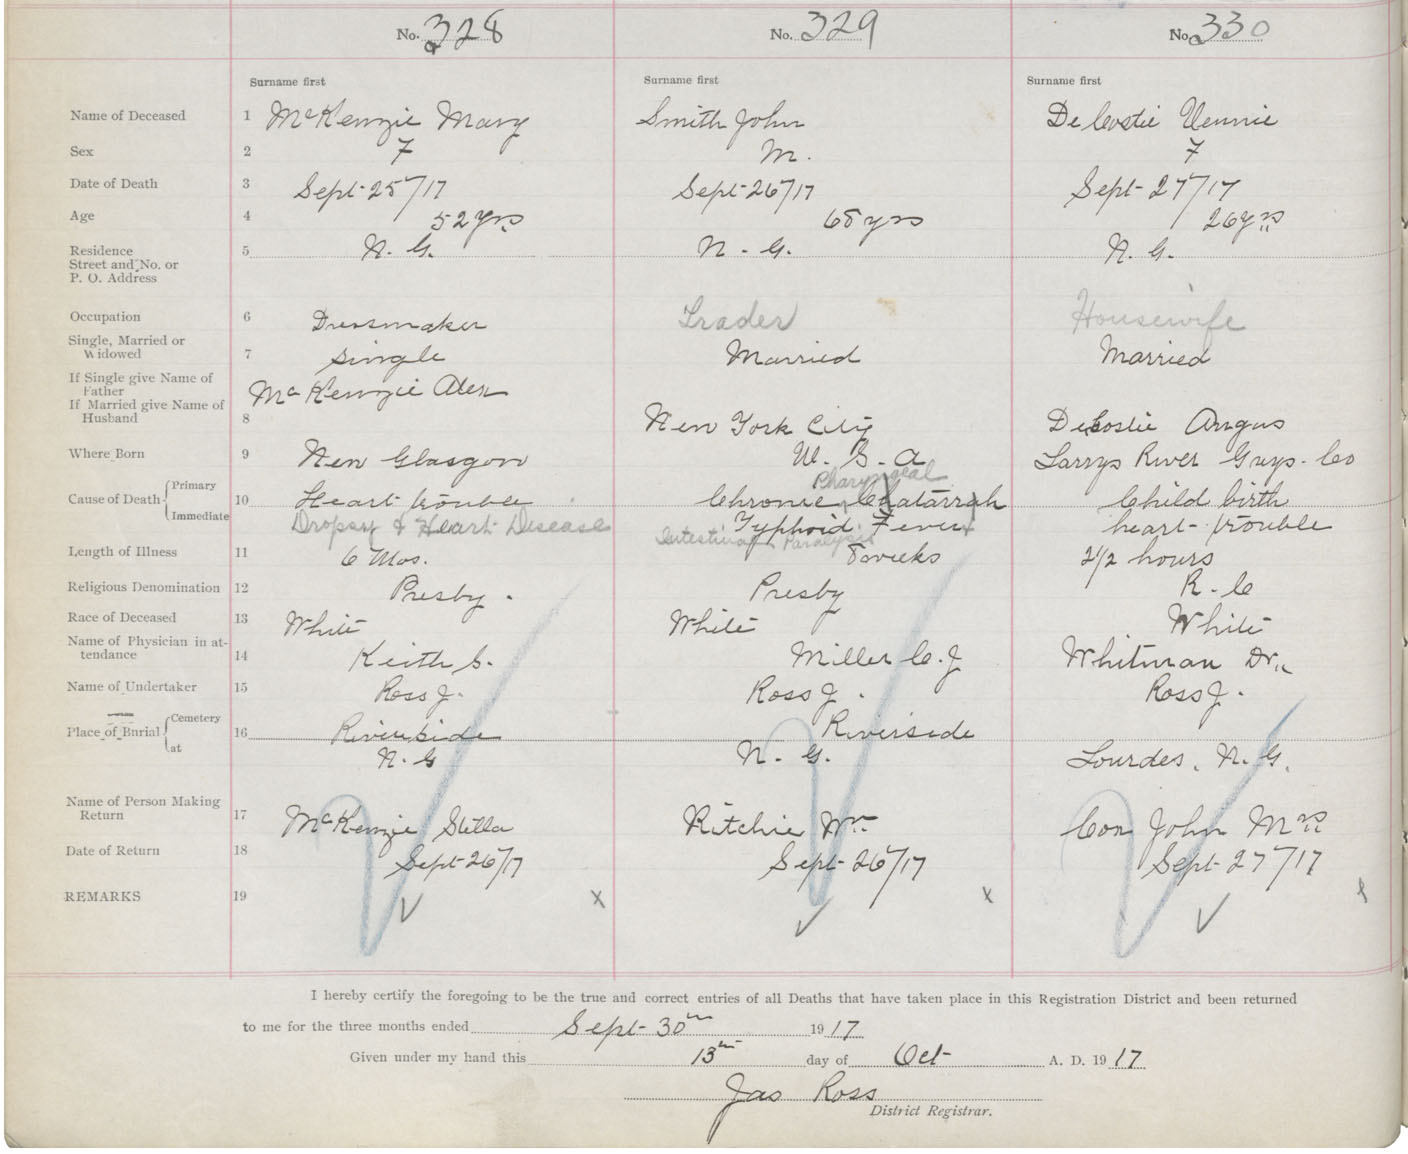 No. 328 No. 329 No. 330
Surname first Surname first Surname first
Name of Deceased 1 McKenzie Mary Smith John DeCostie Vennie
Sex 2 F M. F
Date of Death 3 Sept 25/17 Sept 26/17 Sept 27/17
Age 4 52 yrs 68 yrs 26 yrs
Residence 5 N. G. N. G. N. G.
Street and No. or
P. O. Address
Occupation 6 Dressmaker Trader Housewife
Single, Married or
Widowed 7 Single Married Married
If Single give Name of
Father McKenzie Alex
If Married give Name of
Husband 8 New York City DeCostie Angus
Where Born 9 New Glasgow U. S. A Larrys River Guys. Co
Pharyngeal
Cause of Death Primary 10 Heart trouble Chronic Catarrah Child birth
Immediate Dropsy & Heart Disease Typhoid Fever heart trouble
Intestinal Paralysis
Length of Illness 11 6 Mos. 8 weeks 2 1/2 hours
Religious Denomination 12 Presby. Presby R. C
Race of Deceased 13 White White White
Name of Physician in at-
tendance 14 Keith S. Miller C. J Whitman Dr.
Name of Undertaker 15 Ross J. Ross J. Ross J.
Place of Burial Cemetery 16 Riverside Riverside
at N. G N. G. Lourdes, N. G.
Name of Person Making
Return 17 McKenzie Stella Ritchie Wm Con John Mrs
Date of Return 18 Sept 26/17 Sept 26/17 Sept 27/17
REMARKS 19 x x x
I hereby certify the foregoing to be the true and correct entries of all Deaths that have taken place in this Registration District and been returned
to me for the three months ended Sept 30th 1917
Given under my hand this 13th day of Oct A. D. 1917
Jas Ross
District Registrar.